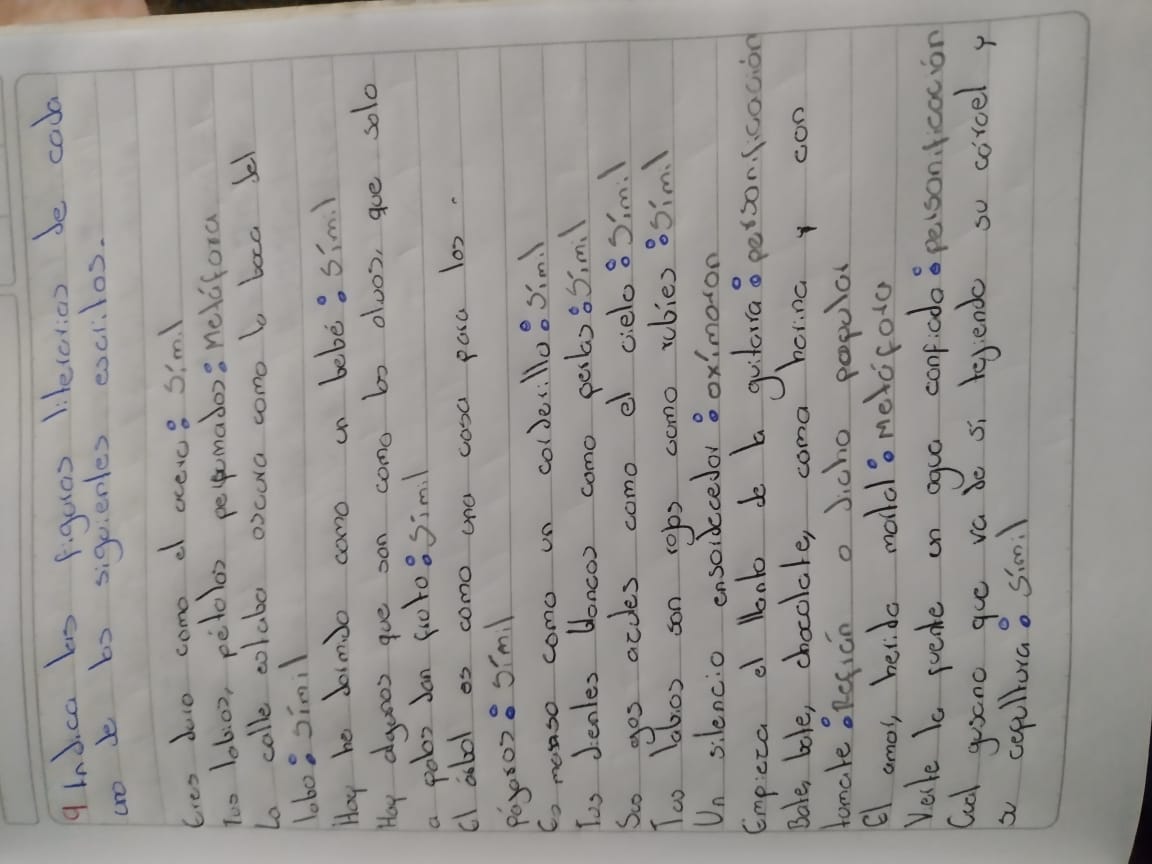 9 Indica las figuras literarias de cada
uno de los siguientes escritos.
Eres duro como el acero: Símil
Tus labios, pétalos perfumados: Metáfora
La calle estaba oscura como la boca del
lobo: Símil
Hoy he dormido como un bebé: Símil
Hay algunos que son como los olivos, que solo
a palos dan fruto: Símil
El árbol es como una casa para los
pájaros: Símil
Es manso como un corderillo: Símil
Tus dientes blancos como perlas: Símil
Sus ojos azules como el cielo: Símil
Tus labios son rojos como rubíes: Símil
Un silencio ensordecedor: oxímoron
Empieza el llanto de la guitarra: personificación
Bate, bate, chocolate, como harina y con
tomate: Refrán o dicho popular
El amor, herida mortal: Metáfora
Vierte la fuente un agua confiada: personificación
Cual gusano que va de sí tejiendo su cárcel y
su cepultura: Símil